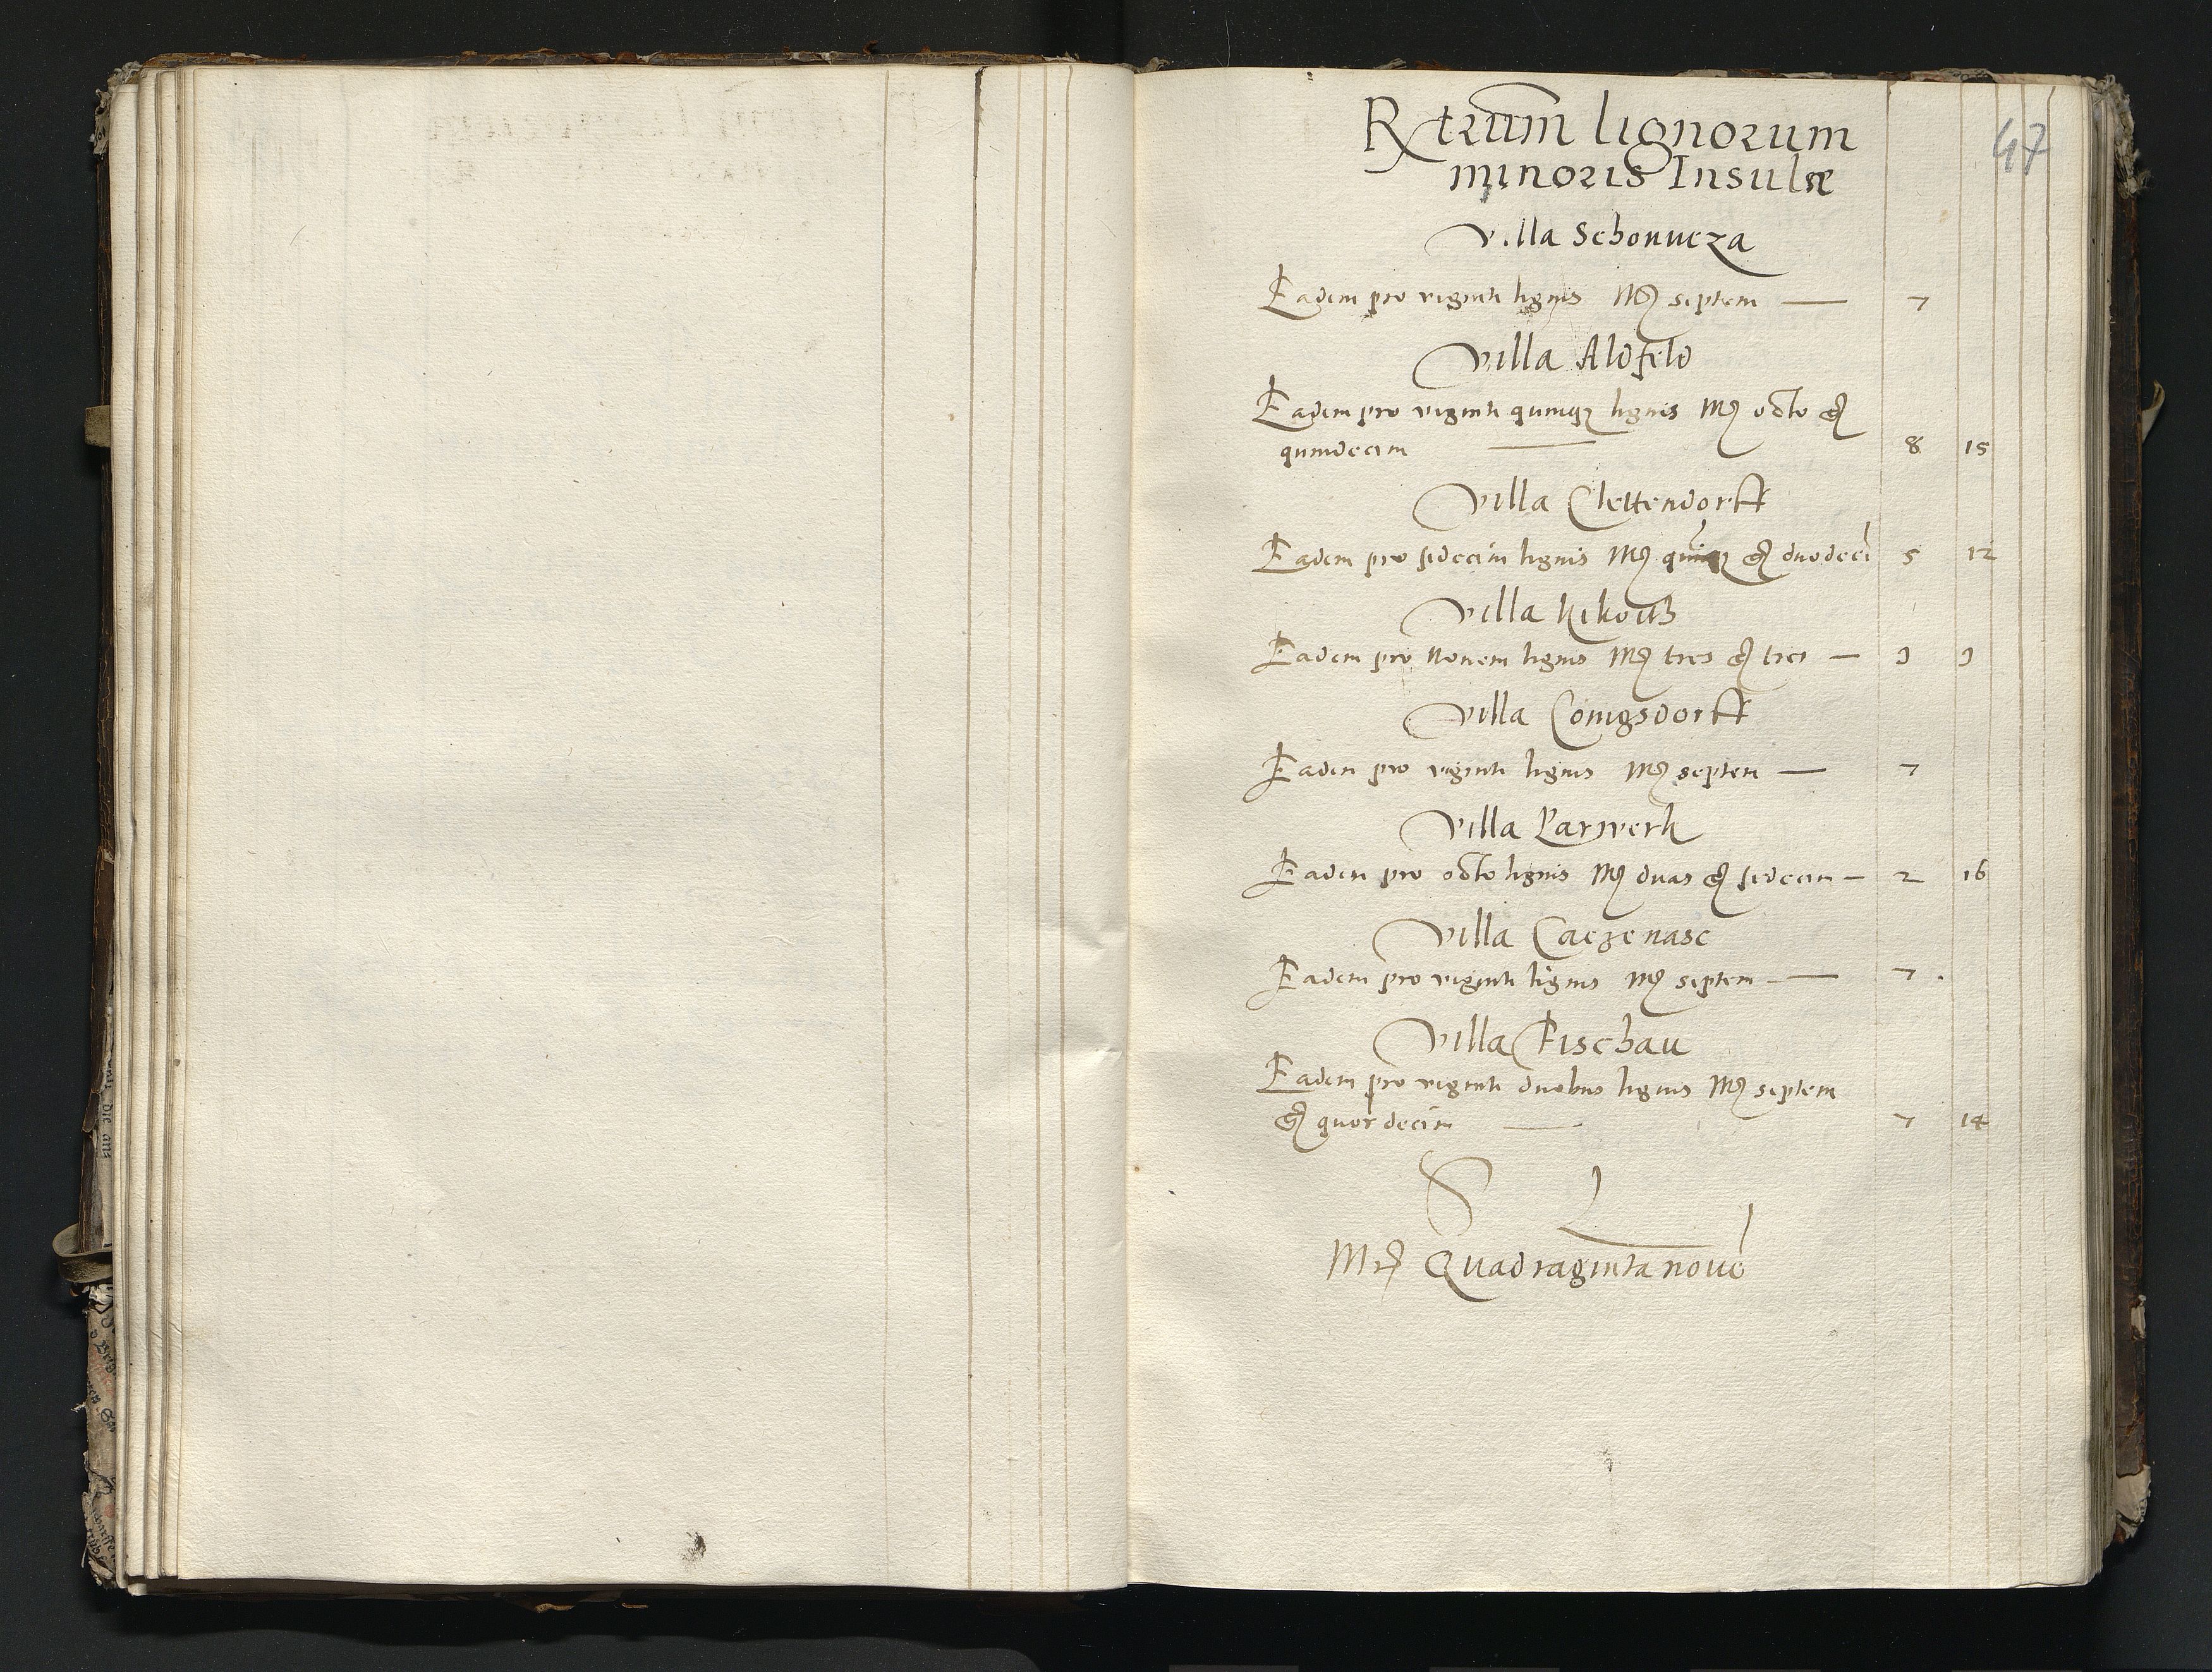 47
Rx trium lignorum
minoris Insulæ
villa Schonueza
Eadem pro viginti lignis Mr septem — 7
villa Aldfeld
Eadem pro viginti quinqz lignis Mr octo gr
quindecim — 8 15
villa Clettendorff
Eadem pro sedecim lignis Mr quinqz gr duodeci 5 12
villa Kikoitz
Eadem pro Novem lignis Mr tres gr tres — 3 3
villa Conigsdorff
Eadem pro viginti lignis Mr septem — 7
villa Parwerk
Eadem pro octo lignis Mr duas gr sedecim — 2 16
villa Caezenase
Eadem pro viginti lignis Mr septem — 7
villa Fischau
Eadem pro viginti duobus lignis Mr septem
gr quor decim — 7 14
S
Mr Quadraginta nove